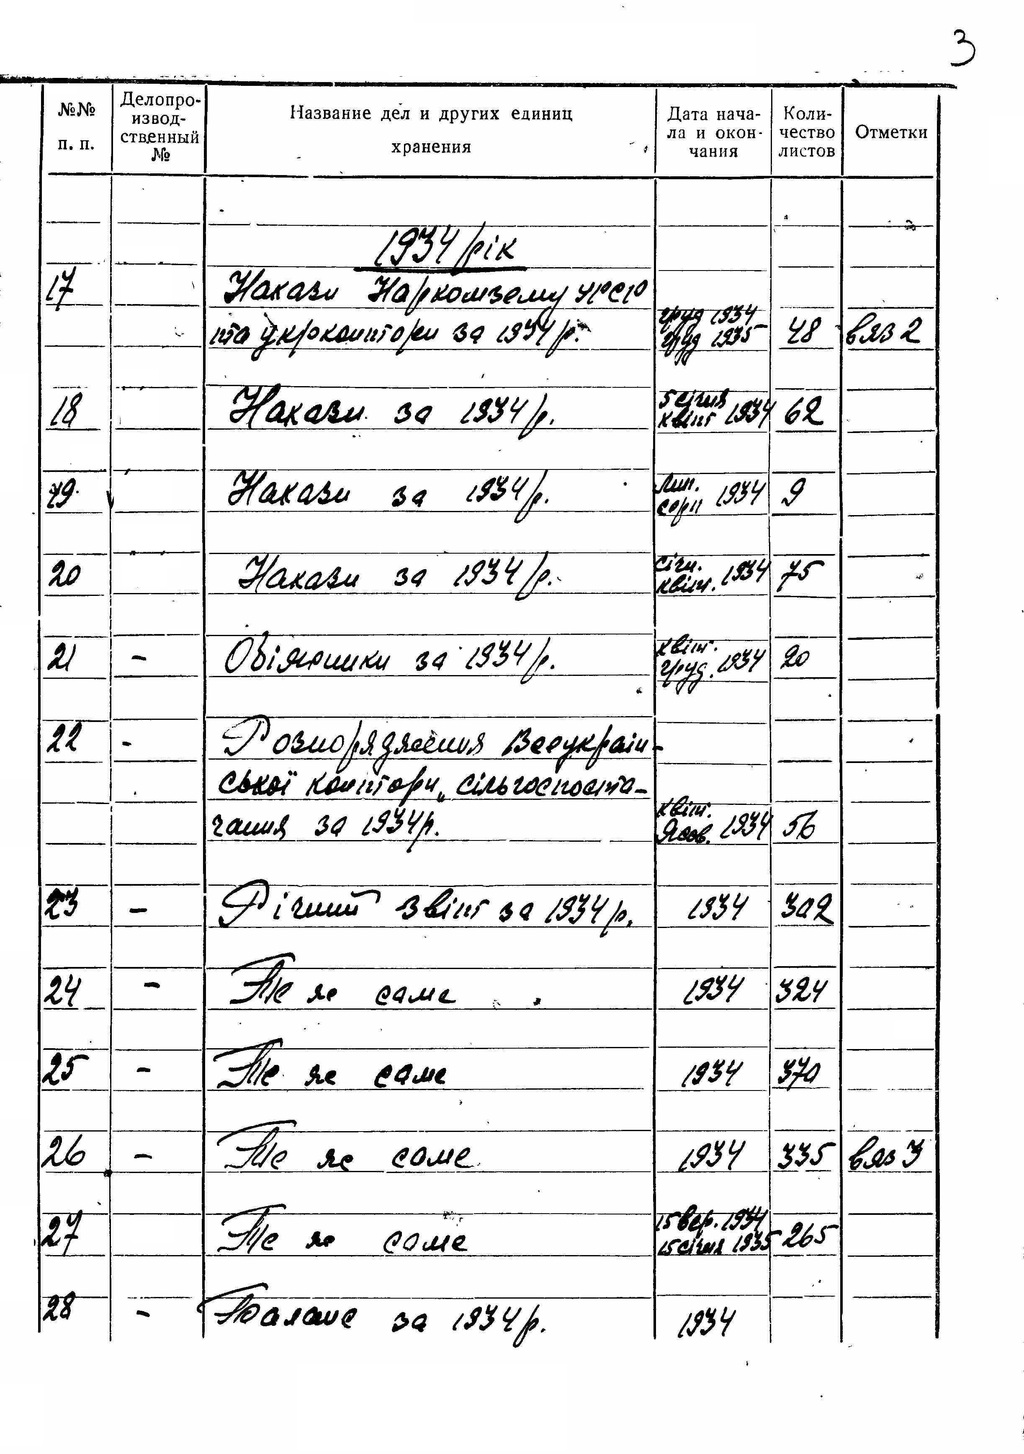 3
№№ п. п.
Делопро-
извод-
ственный
№
Название дел и других единиц
хранения
Дата нача-
ла и окон-
чания
Коли-
чество
листов
Отметки
1934 рік
17 Накази Наркомзему УРСР
та Укрконтори за 1934 р. груд 1934 груд 1935 48 вяз 2
18 Накази за 1934 р. 5 січня квіт 1934 62
19 Накази за 1934 р. Лип. серп 1934 9
20 Накази за 1934 р. Січн. квітн. 1934 75
21 – Обіжники за 1934 р. квіт. груд. 1934 20
22 – Розпорядження Всеукраїн-
ської контори „Сільгоспоста-
чання за 1934 р. квіт. Жов. 1934 56
23 – Річний звіт за 1934 р. 1934 302
24 – Те же саме 1934 324
25 – Те же саме 1934 370
26 – Те же саме 1934 335 вяз 3
27 Те же саме 15 вер. 1934 15 січня 1935 265
28 – Баланс за 1934 р. 1934